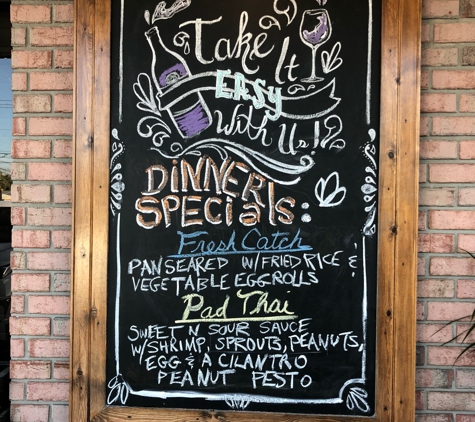 Take It
EASY
With Us!
DINNER
SPECIALS:
Fresh Catch
PAN SEARED W/ FRIED RICE &
VEGETABLE EGGROLLS
Pad Thai
SWEET N SOUR SAUCE
W/ SHRIMP, SPROUTS, PEANUTS,
EGG & A CILANTRO
PEANUT PESTO